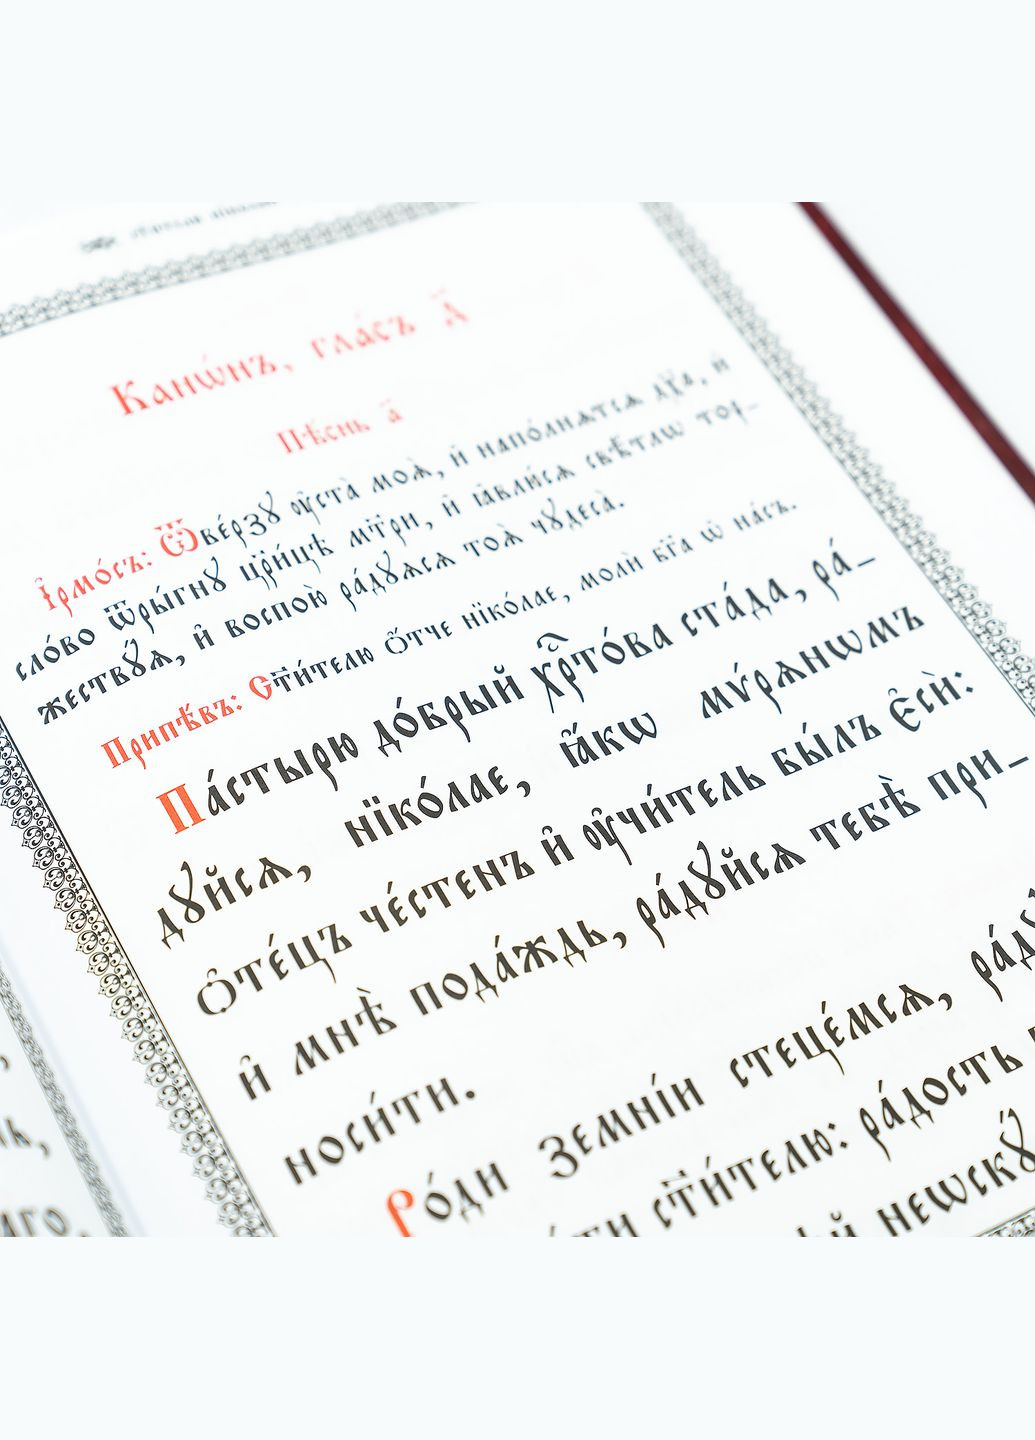 Канѡ́нъ, гла́съ а҃
Пѣ́снь а҃
І҆рмо́съ: Ѿве́рзꙋ ᲂу҆ста̀ моѧ̑, и҆ напо́лнѧтсѧ дх҃а, и҆
сло́во ѿры́гнꙋ цр҃и́цѣ мт҃ри, и҆ ꙗ҆влю́сѧ свѣ́тлѡ тор_
жествꙋ́ѧ, и҆ воспою̀ ра́дꙋѧсѧ тоѧ̀ чꙋдеса̀.
Припѣ́въ: Ст҃и́телю ѻ҆́тче нїко́лае, молѝ бг҃а ѡ҆ на́съ.
Па́стырю до́брый хрⷭ҇то́ва ста́да, ра́_
дꙋйсѧ, нїко́лае, ꙗ҆́кѡ мѵ́рѧнѡмъ
ѻ҆те́цъ че́стенъ и҆ ᲂу҆чи́тель бы́лъ є҆сѝ:
и҆ мнѣ̀ пода́ждь, ра́дꙋйсѧ тебѣ̀ при_
носи́ти.
Ро́ди земні́и стеце́мсѧ,
ст҃и́телю: ра́дость